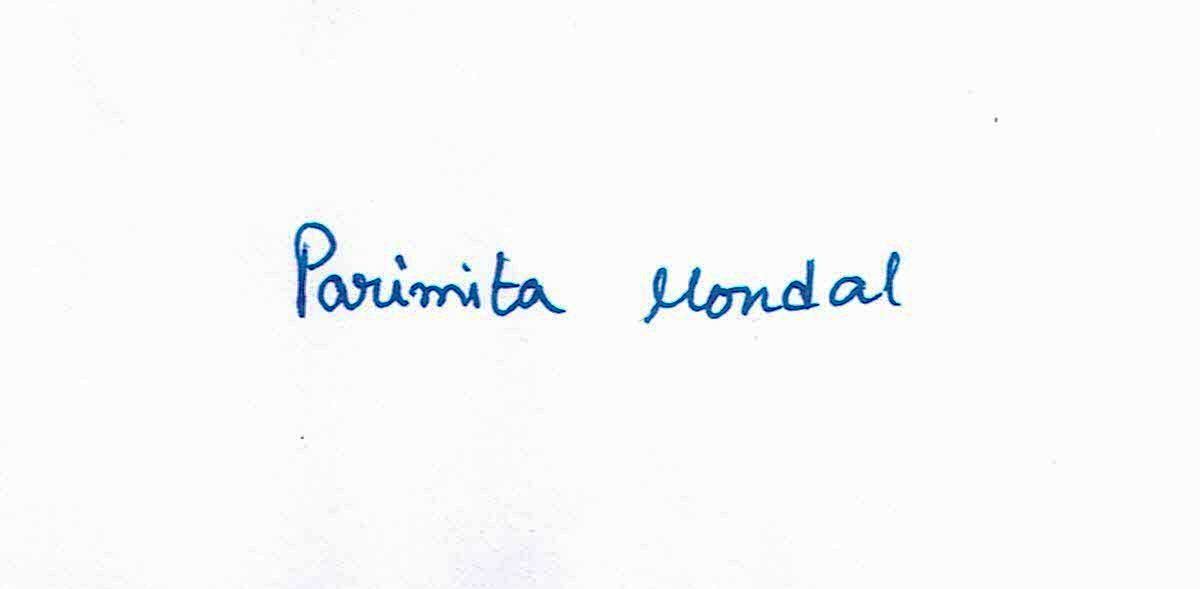 Parimita Mondal